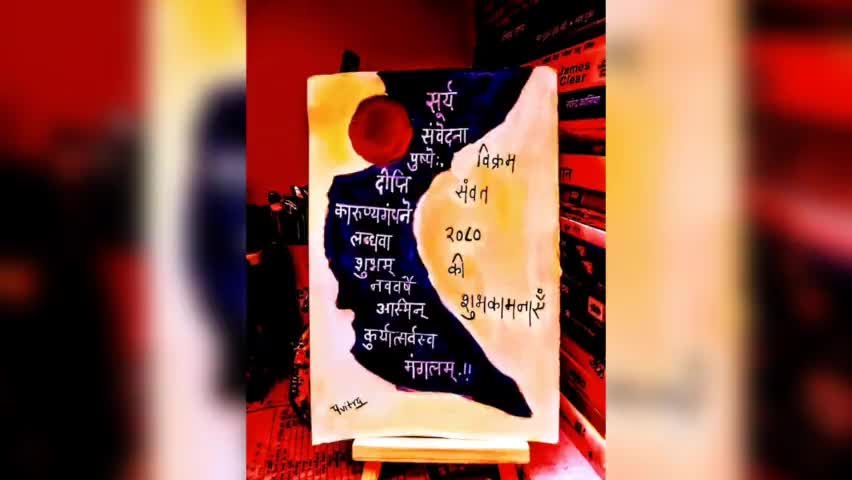 सूर्य
संवेदना
पुष्पेः,
दीप्ति
कारुण्यगंधने
लब्धवा
शुभम्
नववर्षे
अस्मिन्
कुर्यात्सर्वस्व
मंगलम्.!!
विक्रम
संवत
२०८०
की
शुभकामनाएँ
James
Clear